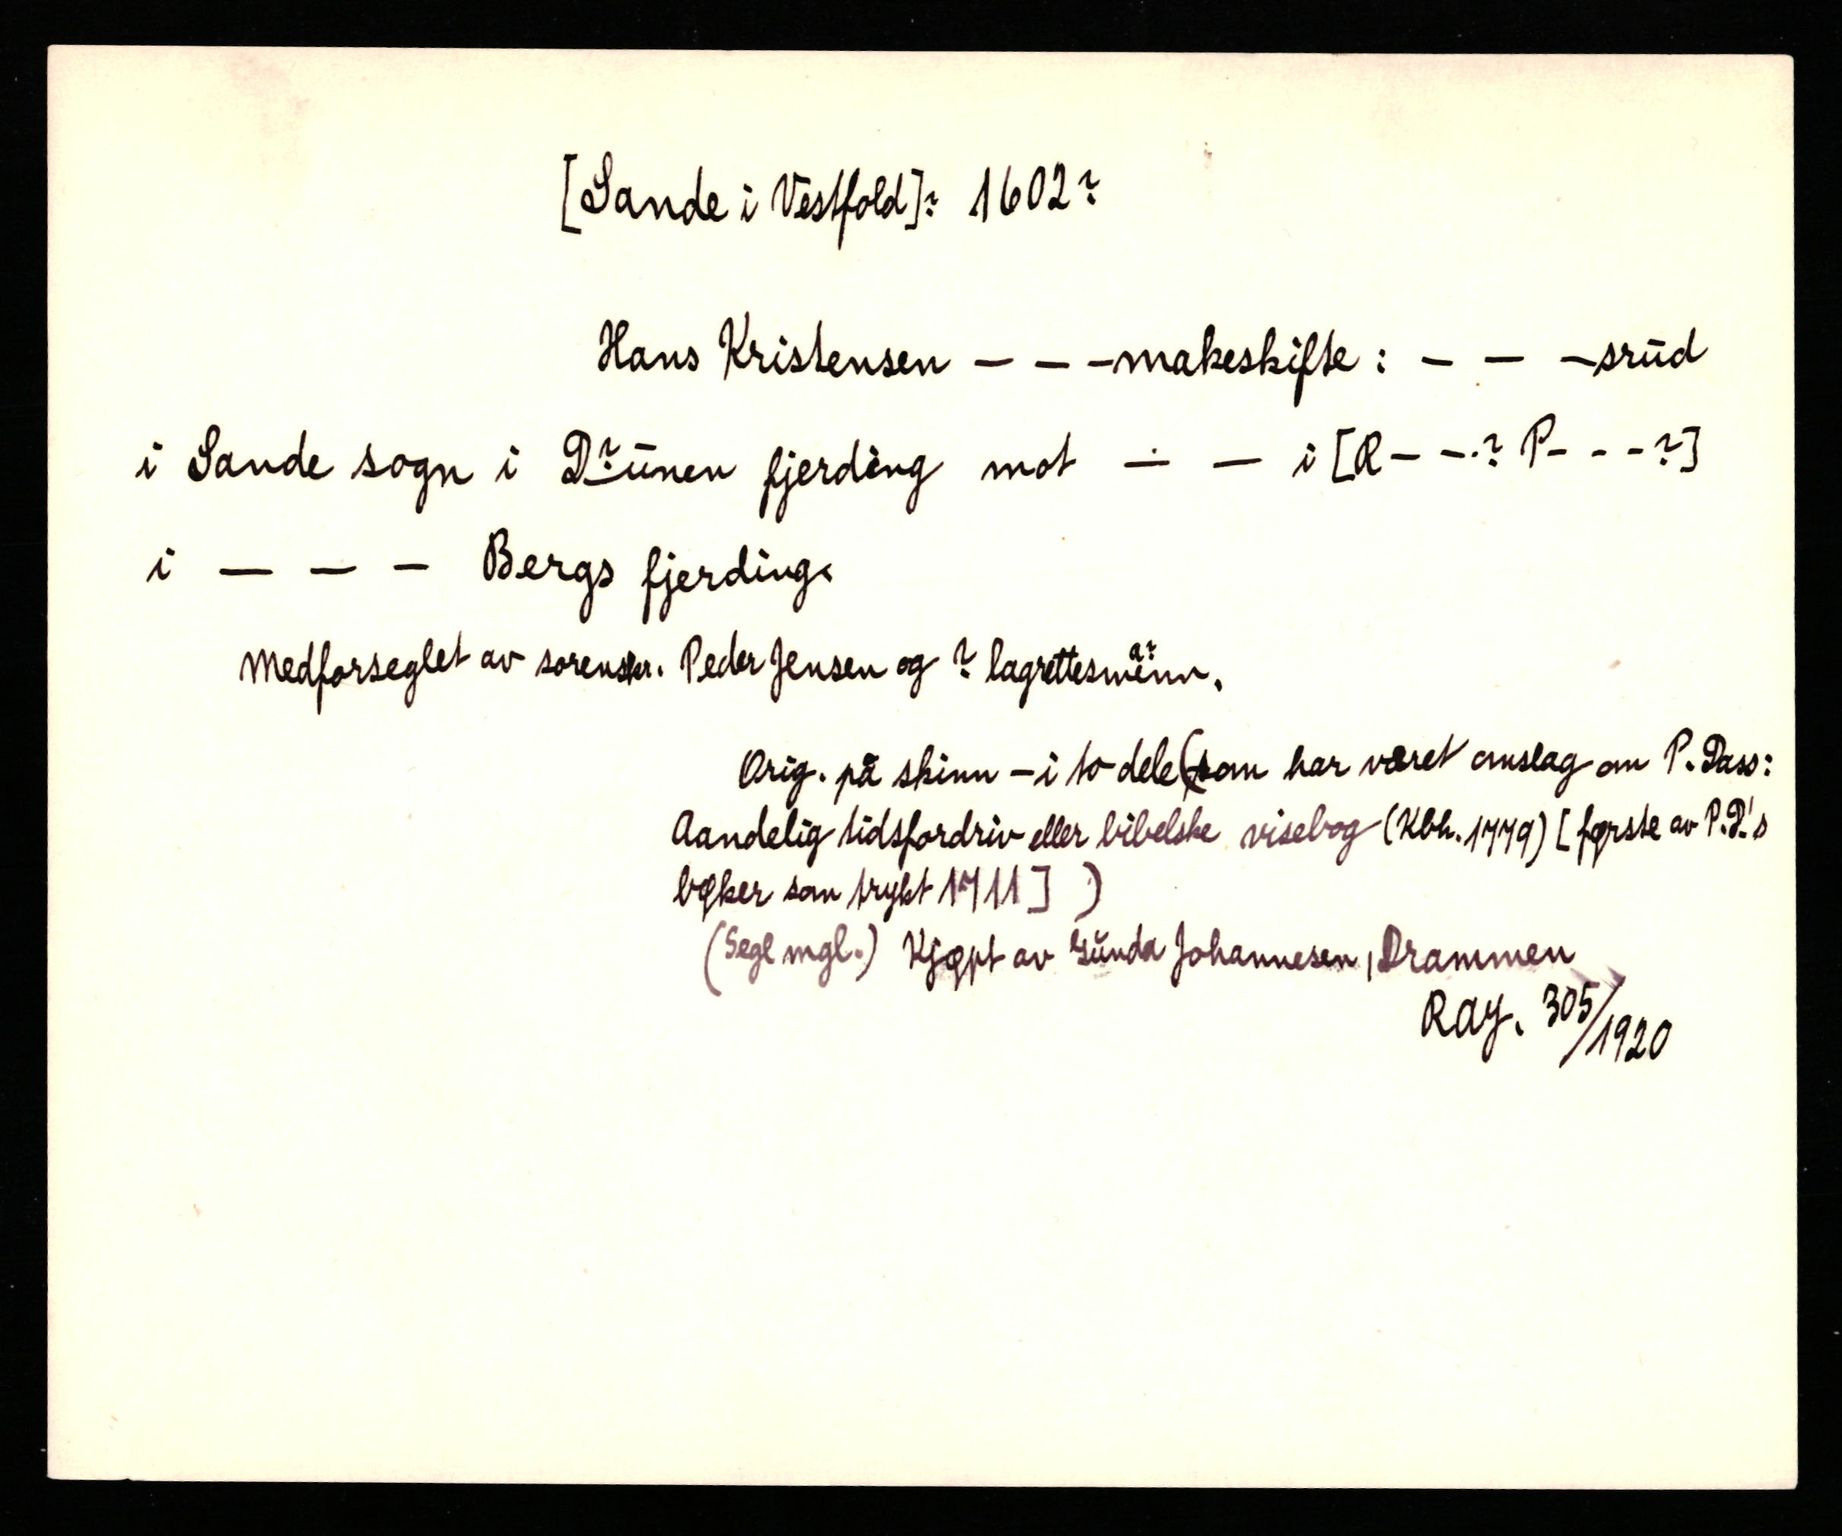 [Sande i Vestfold]? 1602?
Hans Kristensen — — — makeskifte : — — —srud
i Sande sogn i D?unen fjerding mot — — i [R — — ? P - - - ?]
i — — — Bergs fjerding.
Medforseglet av sorenskr. Peder Jensen og ? lagrettesmenn.
a?
Orig. på skinn – i to dele (som har været omslag om P. Dass:
Aandelig tidsfordriv eller bibelske visebog (Kbh. 1779) [første av P.D.'s
bøker som trykt 1711] )
(Segl mgl.) Kjøpt av Gunda Johannesen, Drammen
RAY. 305/1920